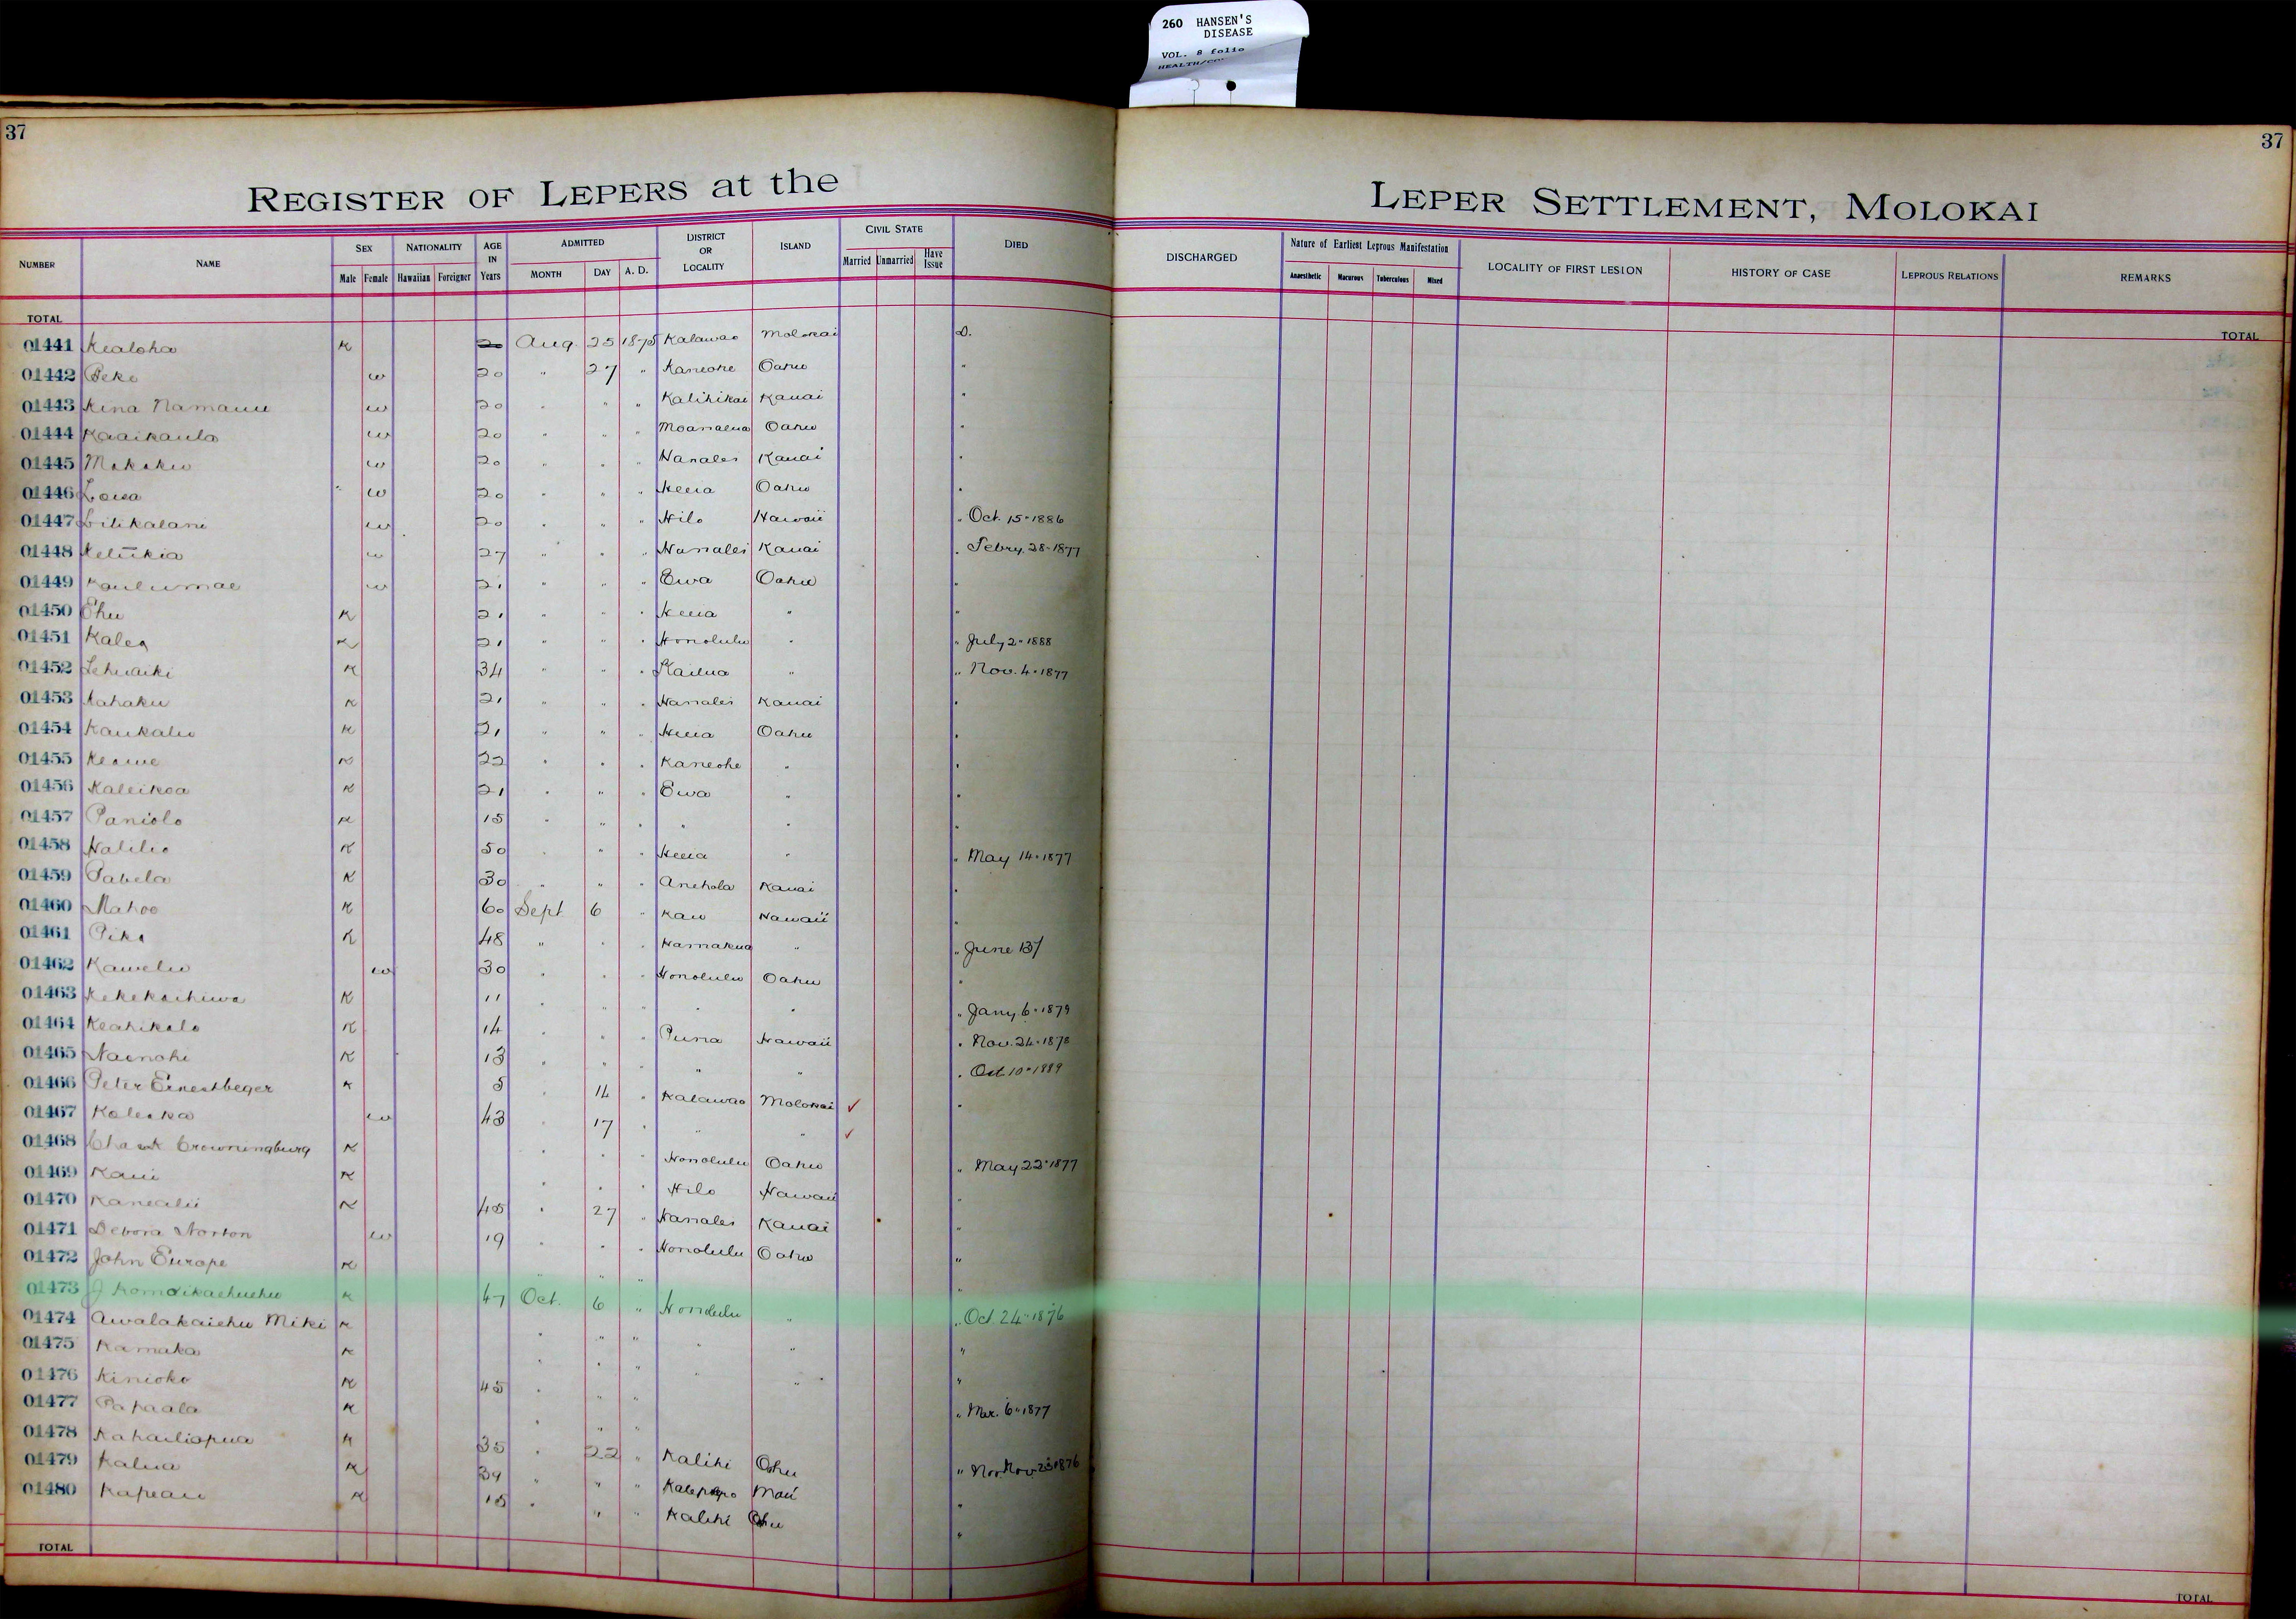 260 HANSEN'S
DISEASE
VOL. 8 folio
37
37
REGISTER OF LEPERS at the LEPER SETTLEMENT, MOLOKAI
NUMBER NAME SEX Male Female NATIONALITY Hawaiian Foreigner AGE IN Years ADMITTED MONTH DAY A. D. DISTRICT OR LOCALITY ISLAND CIVIL STATE Married Unmarried Have Issue DIED DISCHARGED Nature of Earliest Leprous Manifestation Anaesthetic Macurous Tuberculous Mixed LOCALITY OF FIRST LESION HISTORY OF CASE LEPROUS RELATIONS REMARKS
TOTAL TOTAL
01441 Kealoha K 20 Aug. 25 1875 Kalawao Molokai D.
01442 Peke w 20 " 27 " Kaneohe Oahu "
01443 Kina Namauu w 20 " " " Kalihikai Kauai "
01444 Kaaikaula w 20 " " " Moanalua Oahu "
01445 Makaku w 20 " " " Hanalei Kauai "
01446 Loisa w 20 " " " Heeia Oahu "
01447 Lilikalani w 20 " " " Hilo Hawaii " Oct. 15-1886
01448 Keliikia w 27 " " " Hanalei Kauai " Febry. 28-1877
01449 Kaulumae w 21 " " " Ewa Oahu "
01450 Ehu K 21 " " " Heeia " "
01451 Kalea K 21 " " " Honolulu " " July 2-1888
01452 Lehuaiki K 34 " " " Kailua " " Nov. 4-1877
01453 Kahaku K 21 " " " Hanalei Kauai "
01454 Kaukaliu K 21 " " " Heeia Oahu "
01455 Keawe K 22 " " " Kaneohe " "
01456 Kaleikoa K 21 " " " Ewa " "
01457 Paniolo K 15 " " " " " "
01458 Halilio K 50 " " " Heeia " " May 14-1877
01459 Pabela K 30 " " " Anehola Kauai "
01460 Mahoe K 60 Sept 6 " Kau Hawaii "
01461 Pika K 48 " " " Hamakua " " June 13/
01462 Kawelu w 30 " " " Honolulu Oahu "
01463 Kekekachiwa K 11 " " " " " " Jany. 6-1879
01464 Keahikalo K 14 " " " Puna Hawaii " Nov. 24-1878
01465 Nainohi K 13 " " " " " " Oct 10-1889
01466 Peter Ernestbeger K 5 " 14 " Kalawao Molokai ✓ "
01467 Kaleika w 43 " 17 " " " ✓
01468 Crowningburg K " " " Honolulu Oahu " May 22-1877
01469 Kaui K " " " Hilo Hawaii "
01470 Kanealii K 45 " 27 " Hanalei Kauai "
01471 Debora Norton w 19 " " " Honolulu Oahu "
01472 John Europe K " " " "
01473 J K 47 Oct. 6 " Honolulu " " Oct 24-1876
01474 Awalakaiehu Miki K " " " " " "
01475 Kamaka K " " " " " "
01476 Kinioko K 45 " " " "
01477 Papaala K " " " " Mar. 6-1877
01478 Kahailiopua K 35 " 22 " Kalihi Oahu " Nov. 23-1876
01479 Kalua K 39 " " " Kalepopo Maui "
01480 Kapeau K 15 " " " Kalihi Oahu "
TOTAL TOTAL